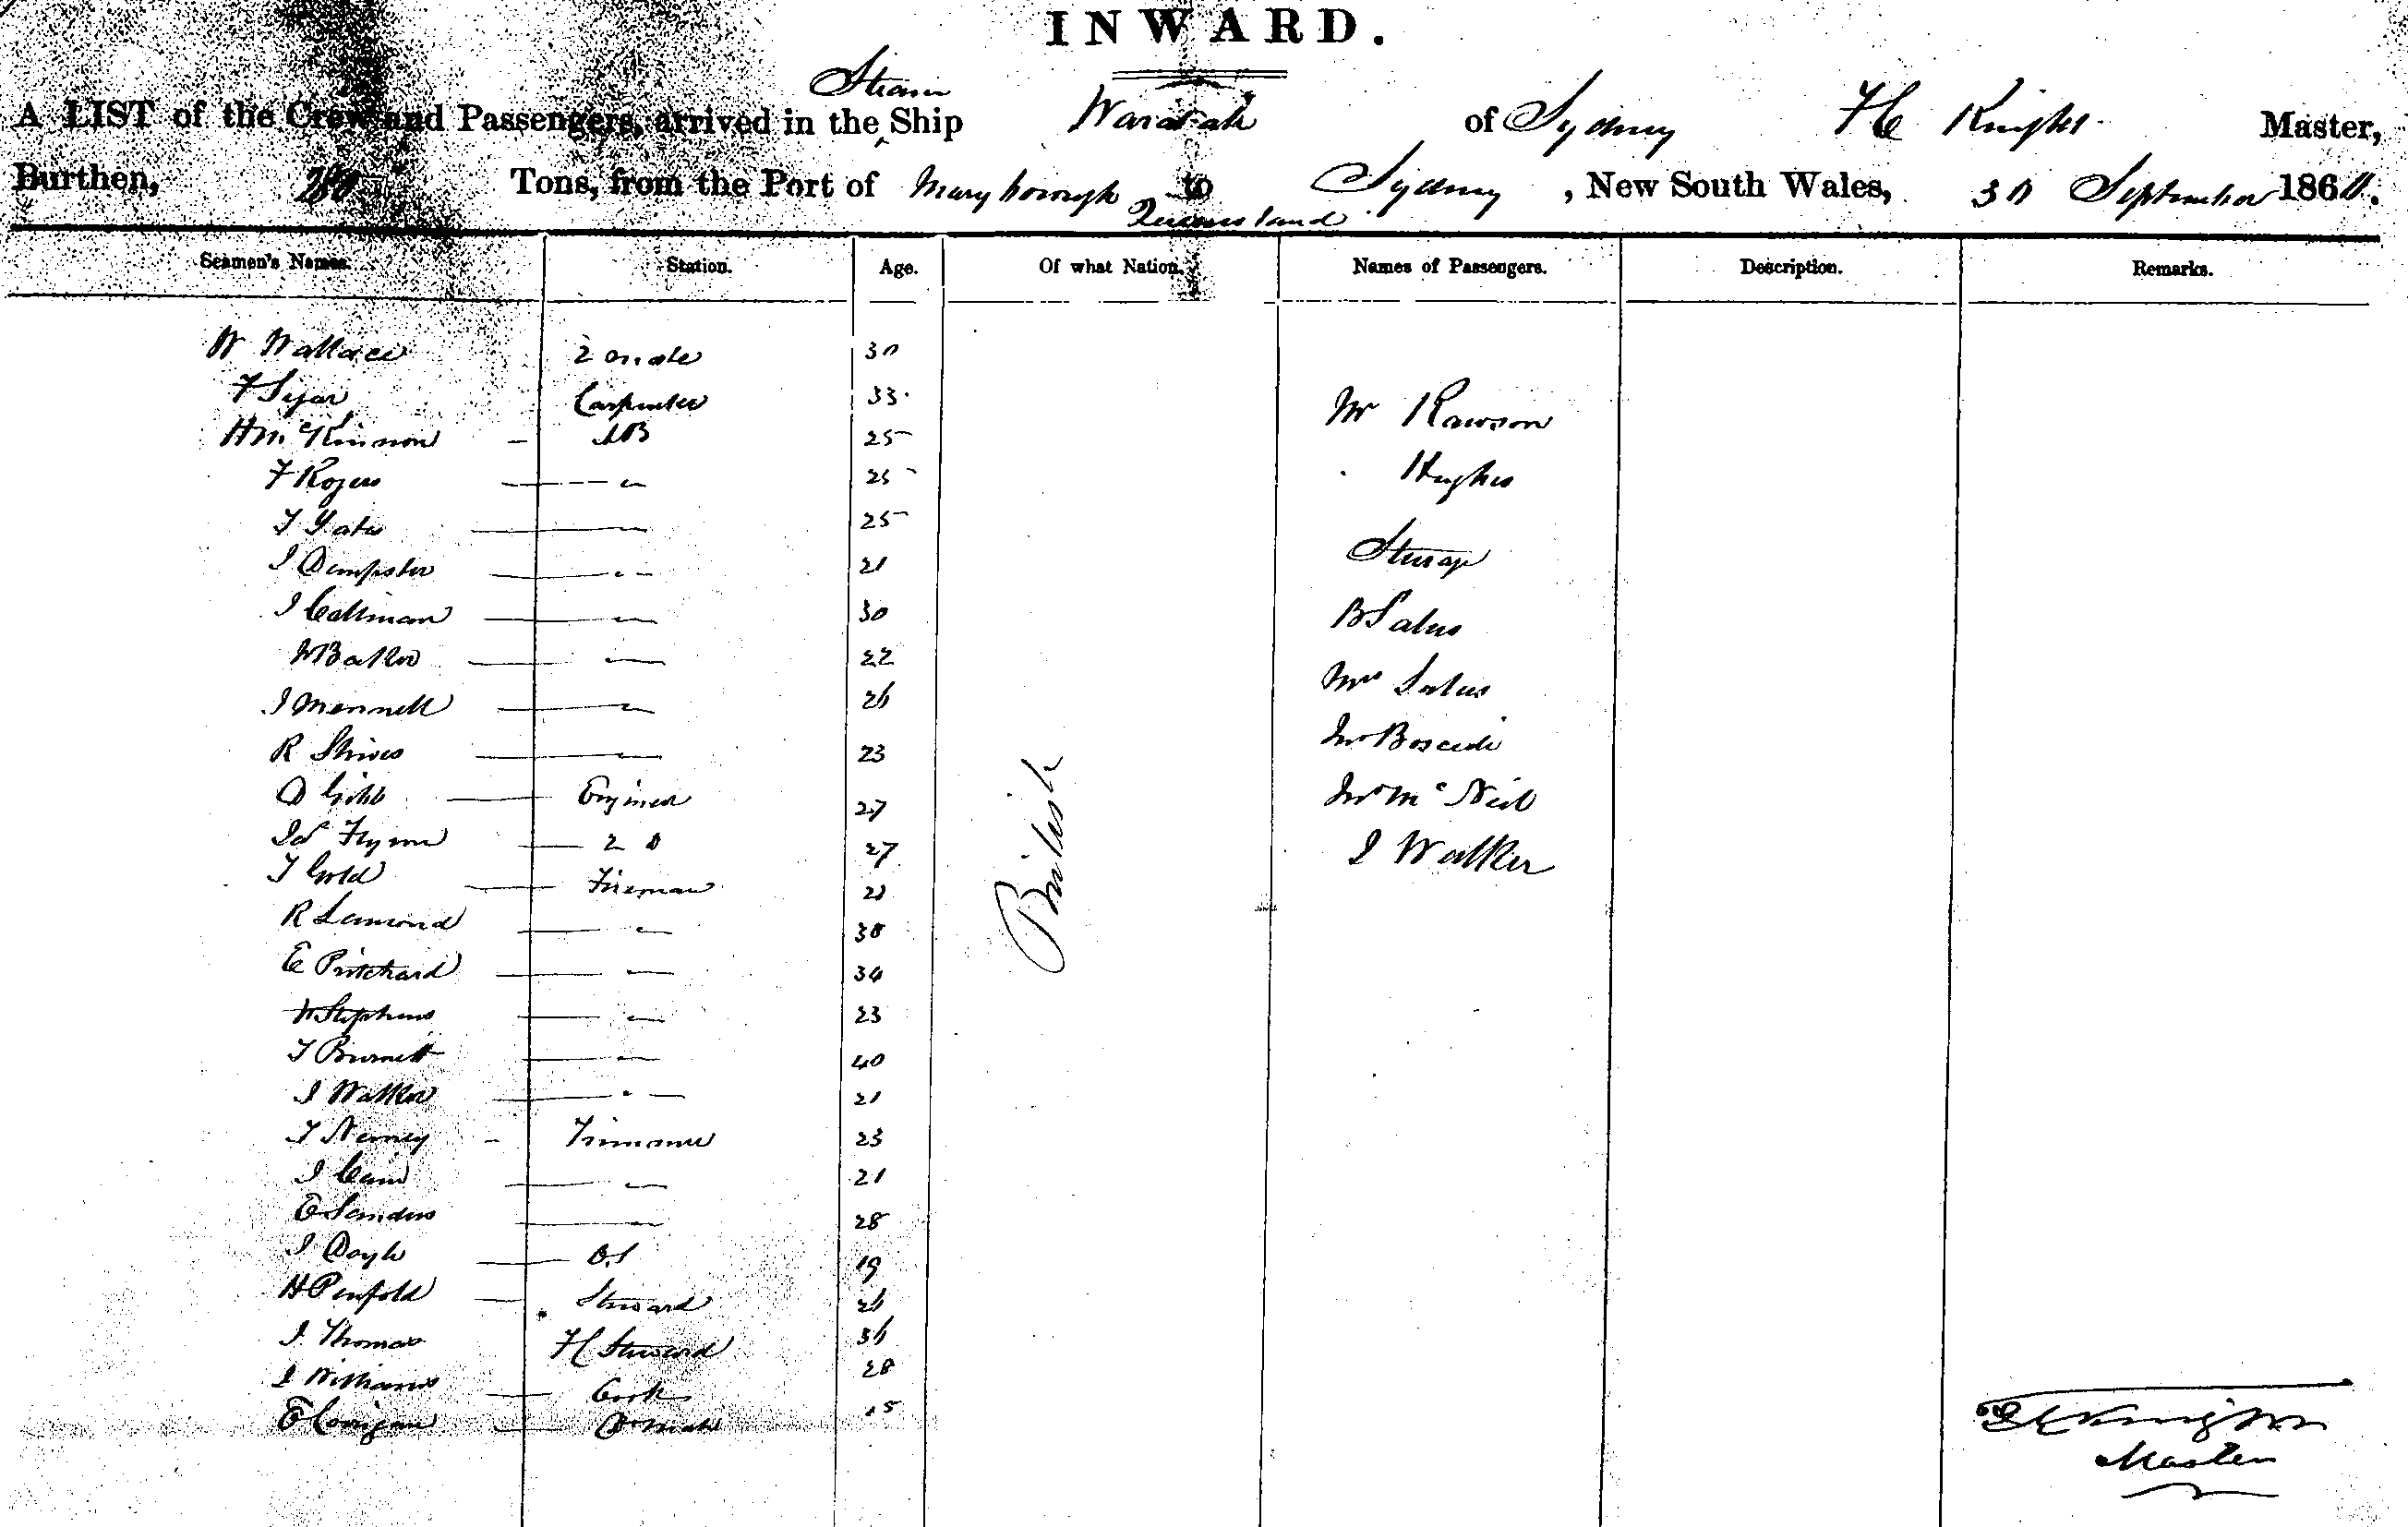 INWARD.
A LIST of the Crew and Passengers, arrived in the Steam Ship Waratah of Sydney F C Knight Master,
Burthen, 280 Tons, from the Port of Maryborough Queensland to Sydney, New South Wales, 30 September 1860.
Seamen's Names. Station. Age. Of what Nation. Names of Passengers. Description. Remarks.
W Wallace 2 mate 30
F 33. Carpenter
H McKinnon AB 25 Mr Rawson
F Rogers " 25 Hughes
T Yates " 25
J Dempster " 21 Steerage
J Caltman " 30 B
W Barlow " 22 Mrs
J Mennell " 26 Mr
R Shives " 23
D Gibb Engineer 27 British Mr McNeil
Jas Flynn 2 D 27 J Walker
T Gold Fireman 21
R Lamond " 38
E Pritchard " 34
W Stephens " 23
T Burnett " 40
J Walker " 21
T Nerney Trimmer 23
J Cain " 21
E Sanders " 28
J Doyle O.S 19
H Penfold Steward 26
J Thomas F C Steward 36
J Williams Cook 28
E Corrigan Do Mate 15
F C Knight
Master